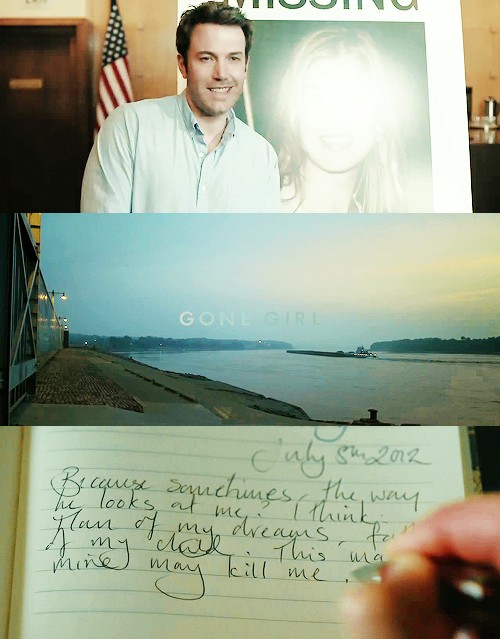 MISSING
GONE GIRL
July 5th 2012
Because sometimes, the way
he looks at me? I think:
Man of my dreams, fat
of my child. This ma
mine may kill me.